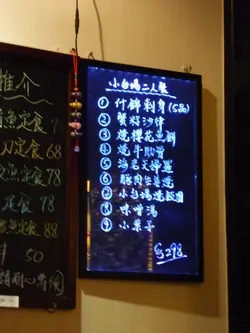 推介
魚定食 7
刀定食 68
魚定食 78
定食 78
定食 88
50
小白湯二人餐
① 什錦刺身(5品)
② 蟹籽沙律
③ 燒櫻花魚餅
④ 燒牛肋骨
⑤ 海老天婦羅
⑥ 豚肉生姜燒
⑦ 小白湯燒飯團
⑧ 味噌湯
⑨ 小菓子
$298